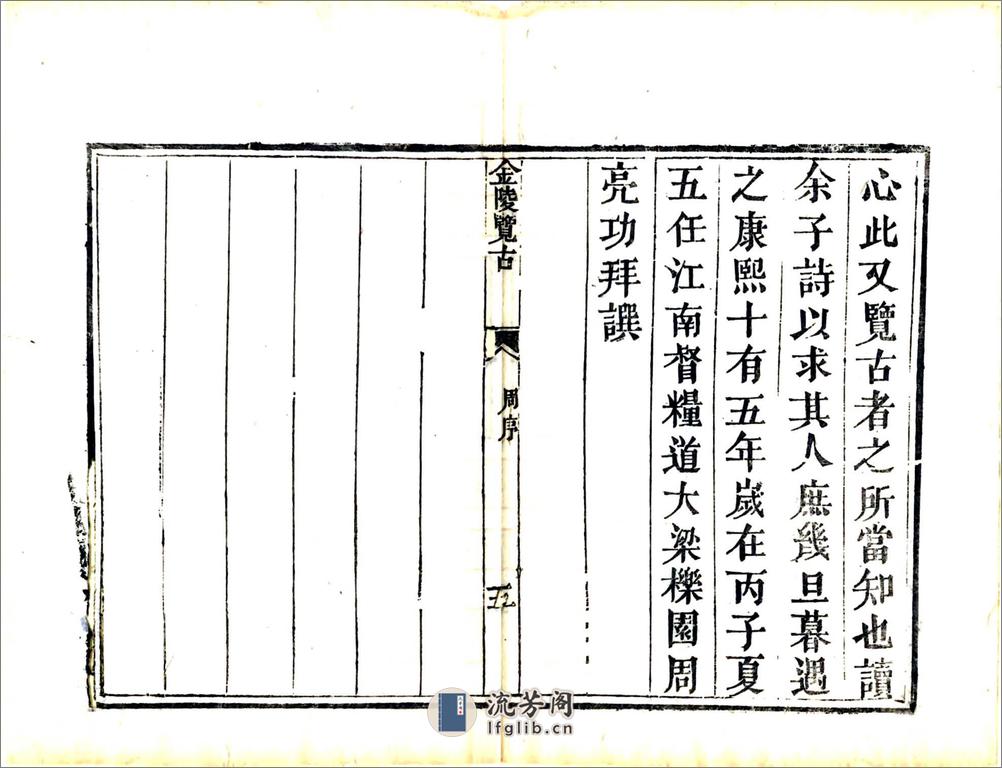 心此又覽古者之所當知也讀
余子詩以求其人庶幾旦暮遇
之康熙十有五年歲在丙子夏
五任江南督糧道大梁櫟園周
亮功拜譔
金陵覽古
周序
五
流芳阁
lfglib.cn